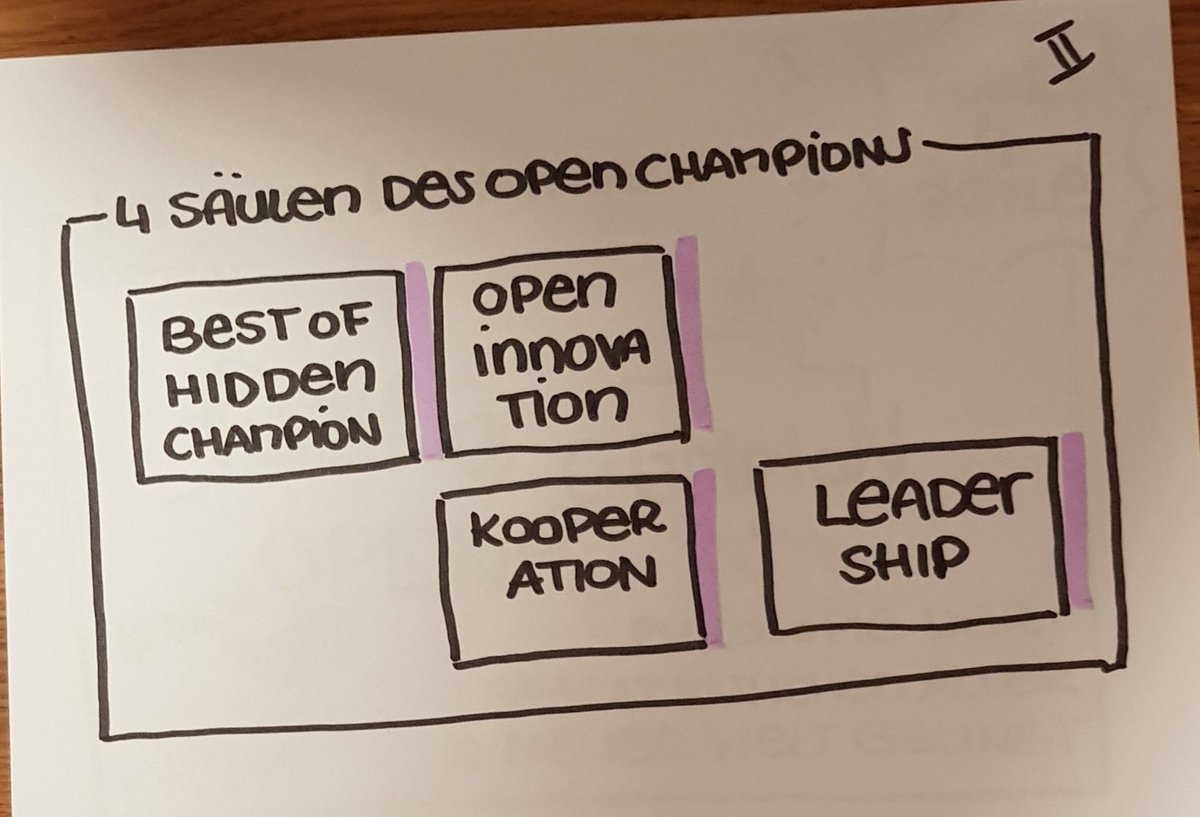 II
4 SÄULEN DES OPEN CHAMPIONS
BEST OF
HIDDEN
CHAMPION
OPEN
INNOVA
TION
KOOPER
ATION
LEADER
SHIP